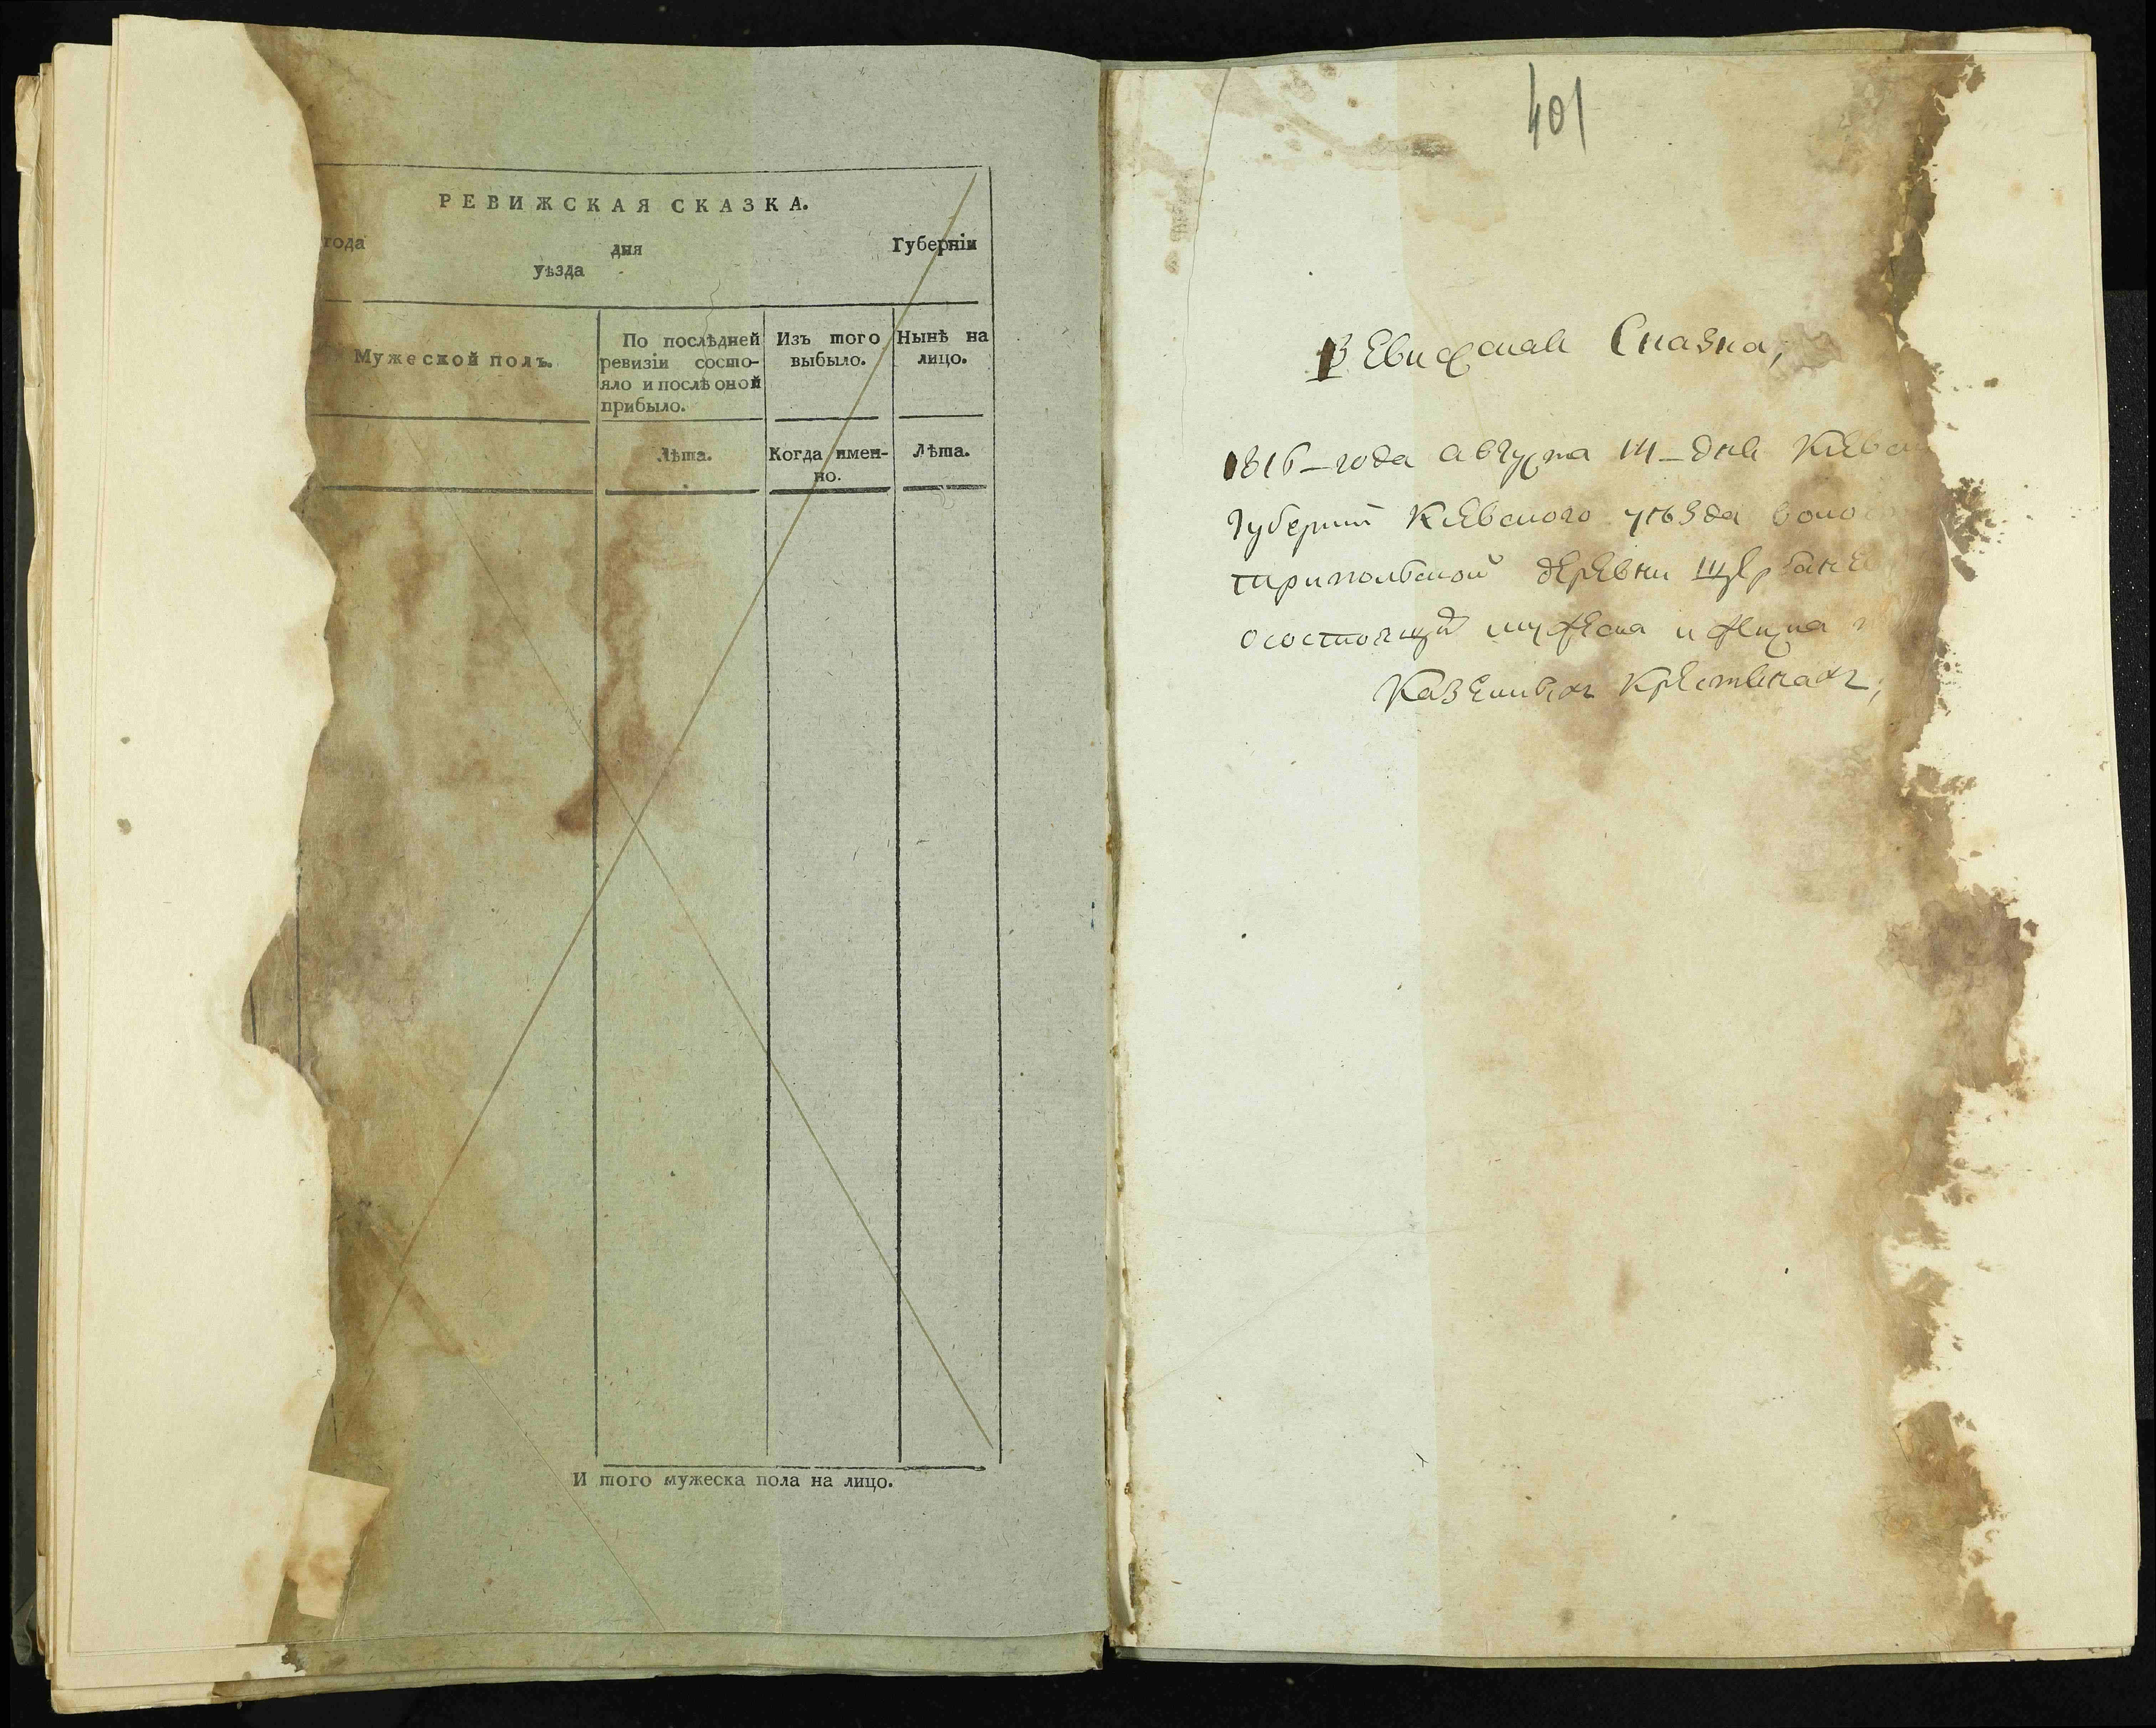 РЕВИЖСКАЯ СКАЗКА.
года дня Губерніи
уѣзда
Мужеской полъ.
По послѣдней
ревизіи состо-
яло и послѣ оной
прибыло.
Изъ того
выбыло.
Нынѣ на
лицо.
Лѣта.
Когда имен-
но.
Лѣта.
И того мужеска пола на лицо.
401
Ревижская Сказка,
1816-года августа 14-дня Киевс
Губернии Киевского уѣзда воло
трипольской деревни
осостоящих мужеска и женска
Казенных Крестьянах,